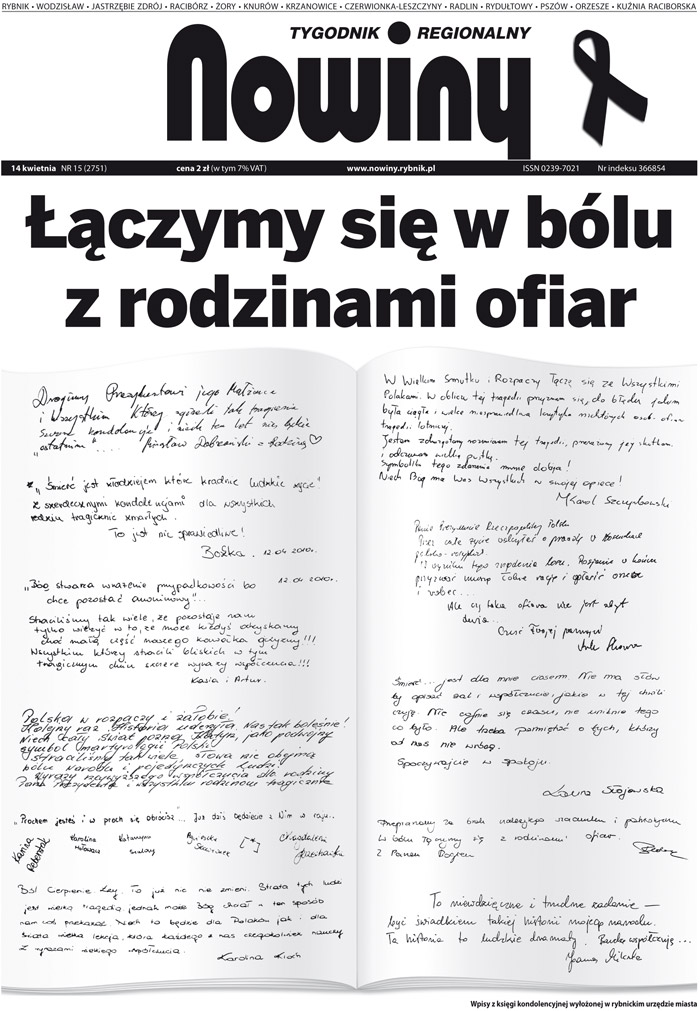 RYBNIK • WODZISŁAW • JASTRZĘBIE ZDRÓJ • RACIBÓRZ • ŻORY • KNURÓW • KRZANOWICE • CZERWIONKA-LESZCZYNY • RADLIN • RYDUŁTOWY • PSZÓW • ORZESZE • KUŹNIA RACIBORSKA
TYGODNIK REGIONALNY
Nowiny
14 kwietnia NR 15 (2751) cena 2 zł (w tym 7% VAT) www.nowiny.rybnik.pl ISSN 0239-7021 Nr indeksu 366854
Łączymy się w bólu
z rodzinami ofiar
Drogiemu Prezydentowi jego Małżonce
i Wszystkim Którzy zginęli tak tragicznie
"ostatnim"....
"Śmierć jest złodziejem które kradnie ludzkie życie"
Z serdecznymi kondolencjami dla wszystkich
rodzin tragicznie zmarłych.
To jest nie sprawiedliwe!
Bożka. 12.04.2010r.
12.04.2010r.
"Bóg stwarza wrażenie przypadkowości bo
chce pozostać anonimowy"...
Straciliśmy tak wiele, że pozostaje nam
tylko wierzyć w to, że może kiedyś odzyskamy
choć małą część naszego kawałka ojczyzny!!!
Wszystkim którzy stracili bliskich w tym
tragicznym dniu szczere wyrazy współczucia!!!
Kasia i Artur.
Polska w rozpaczy i żałobie!
Kolejny raz Historia uderzyła Nas tak boleśnie!
Niech cały świat pozna Katyń, jako podwójny
symbol martyrologii Polski
straciliśmy tak wiele, słowa nie obejmą
bólu Narodu i pojedynczych Ludzi
Wyrazy najwyższego współczucia dla rodziny
Pana Prezydenta i wszystkich rodzinom tragicznie
"Prochem jesteś i w proch się obrócisz".. Już dziś będziecie z Nim w raju..
Karolina
Katarzyna
[*]
Magdalena
Ból Cierpienie Łzy. To już nic nie zmieni. Strata tych ludzi
jest wielką tragedią, jednak może Bóg chciał w ten sposób
nam coś przekazać. Niech to będzie dla Polaków jak i dla
świata wielka lekcja, która każdego z nas czegokolwiek nauczy
Z wyrazami wielkiego współczucia.
Karolina
W Wielkim Smutku i Rozpaczy Łączę się ze Wszystkimi
Polakami. W obliczu tej tragedii przyznam się, do błędu jakim
była ciągła i wielce niesprawiedliwa krytyka niektórych osób ofiar
tragedii lotniczej.
Jestem zdruzgotany rozmiarem tej tragedii, przerażony jej skutkami
i odczuwam wielką pustkę.
Symbolika tego zdarzenia mnie dobija!
Niech Bóg ma Was Wszystkich w swojej opiece!
Panie Prezydencie Rzeczpospolitej Polskiej
Przez całe życie walczyłeś o prawdę o
Ale czy taka ofiara nie jest zbyt
Cześć Twojej pamięci
Śmierć... jest dla mnie ciosem. Nie ma słów
by opisać żal i współczucie, jakie w tej chwili
czuję. Nie cofnie się czasu, nie uniknie tego
co było. Ale trzeba pamiętać o tych, którzy
od nas nie wrócą.
Spoczywajcie w Spokoju.
Laura
Przepraszamy za brak należytego szacunku i patriotyzmu
W bólu łączymy się z rodzinami ofiar.
Z Panem Bogiem
To niewdzięczne i trudne zadanie —
być świadkiem takiej historii mojego narodu.
Ta historia to ludzkie dramaty. Bardzo współczuję...
Joanna
Wpisy z księgi kondolencyjnej wyłożonej w rybnickim urzędzie miasta